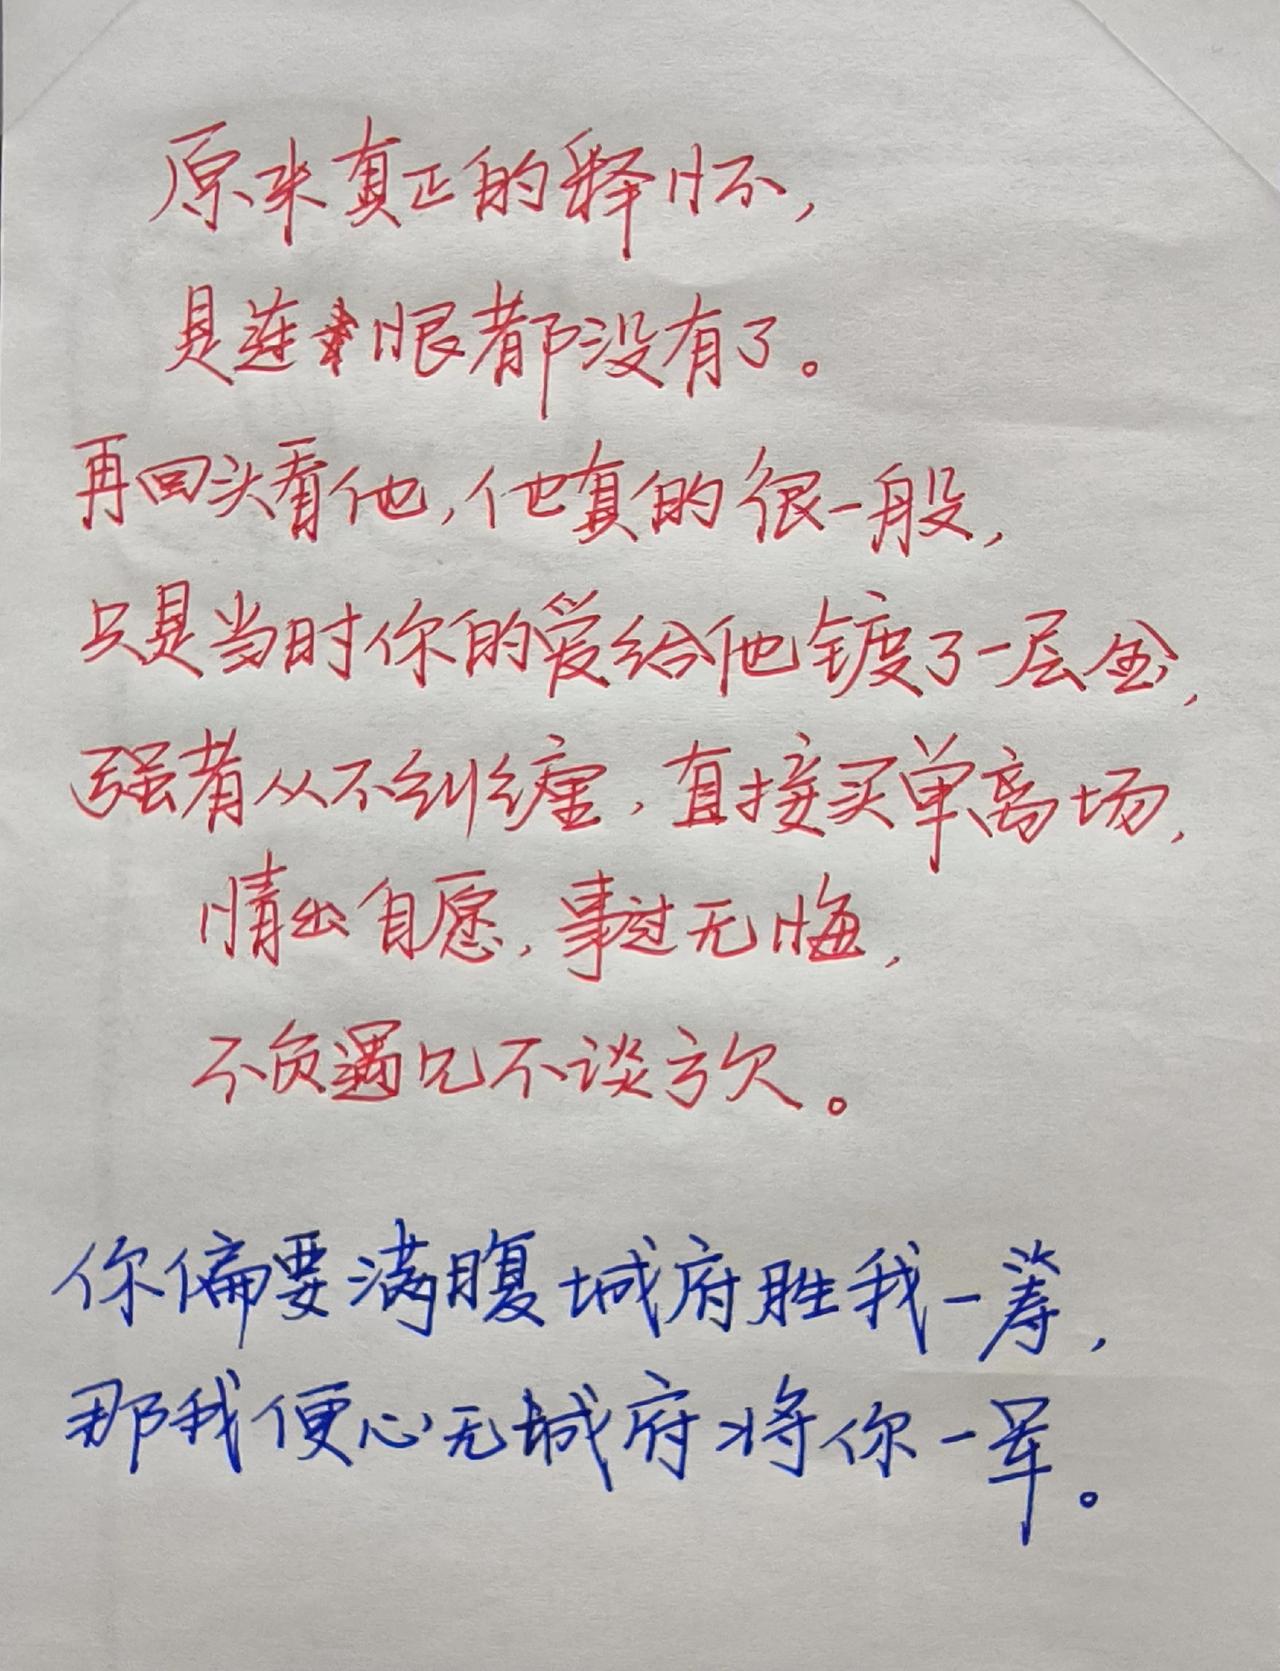 原来真正的释怀,
是连恨都没有了。
再回头看他,他真的很一般,
只是当时你的爱给他镀了一层金,
强者从不纠缠,直接买单离场,
情出自愿,事过无悔,
不负遇见不谈亏欠。
你偏要满腹城府胜我一筹,
那我便心无城府将你一军。